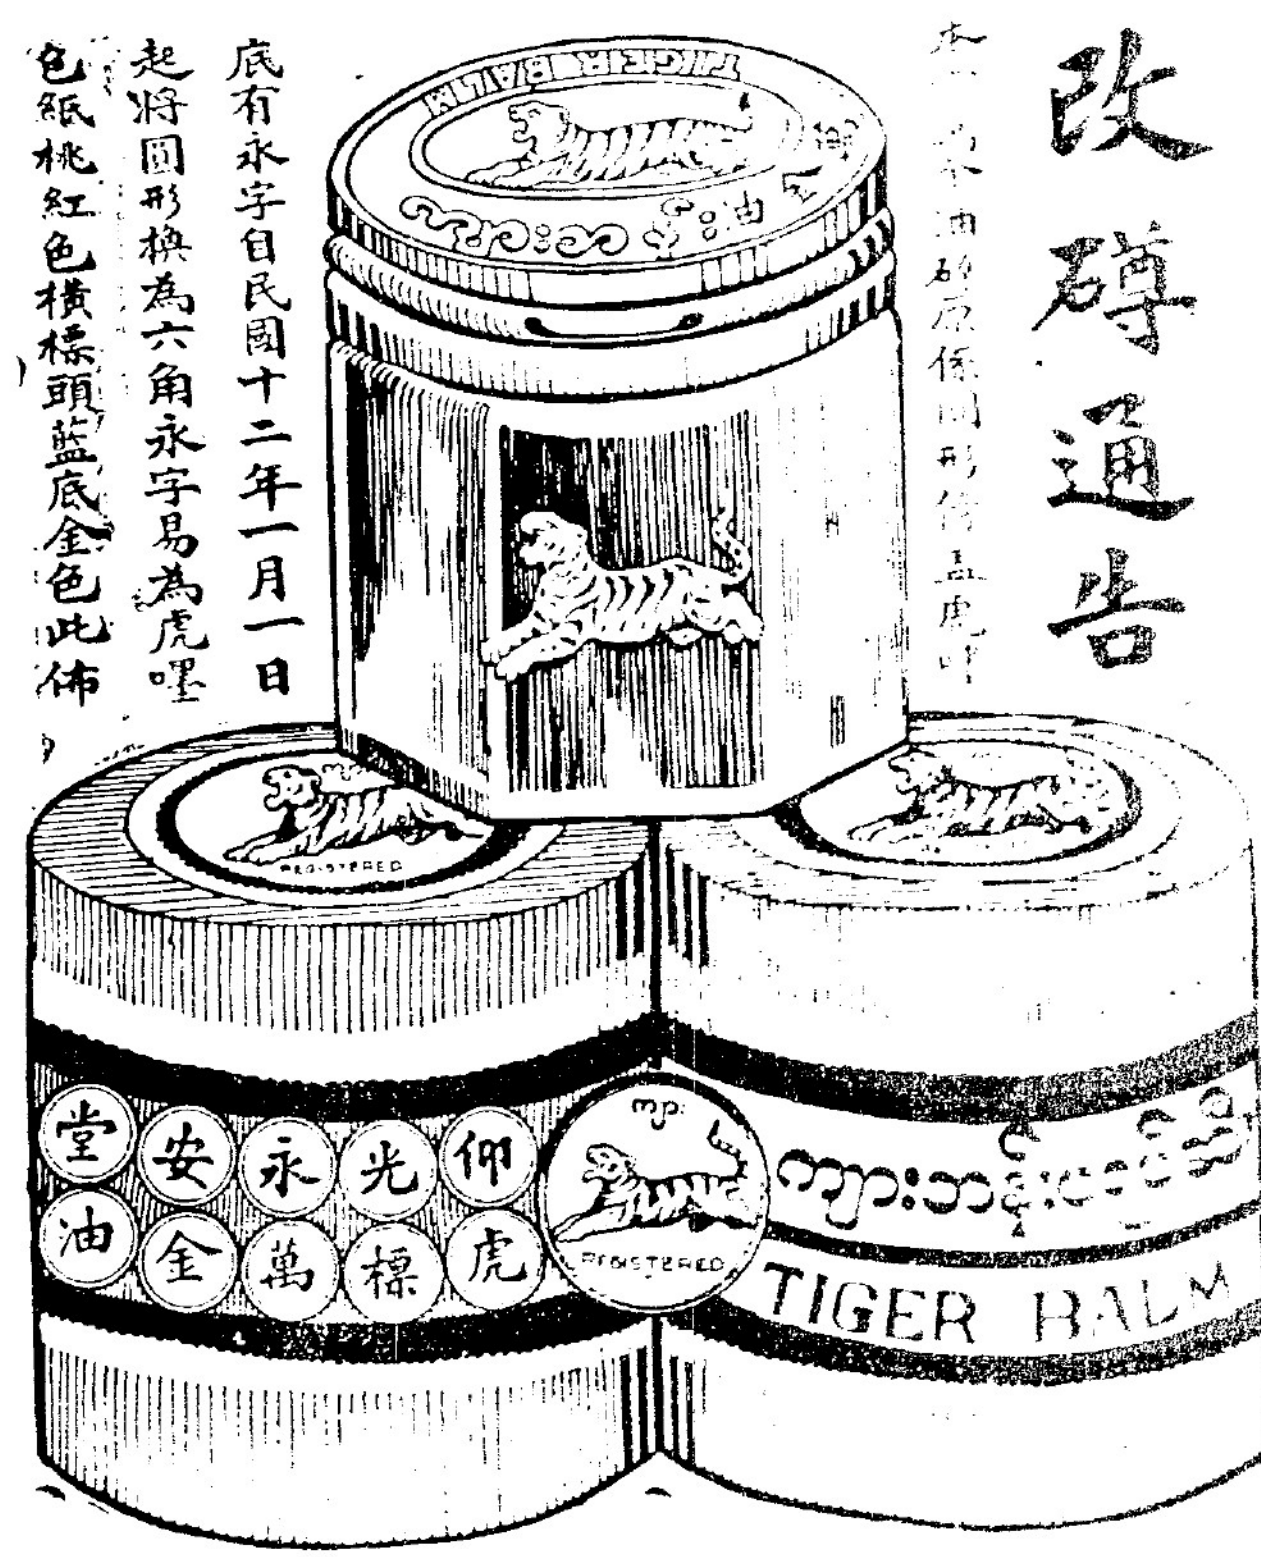 改𥖁通告
本 油 原係圓形 虎印
底有永字自民國十二年一月一日
起將圓形換為六角永字易為虎嘿
色紙桃紅色橫標頭藍底金色此佈
TIGER BALM
油
REGISTERED
仰光永安堂
虎標萬金油
ကျား
REGISTERED
TIGER BALM